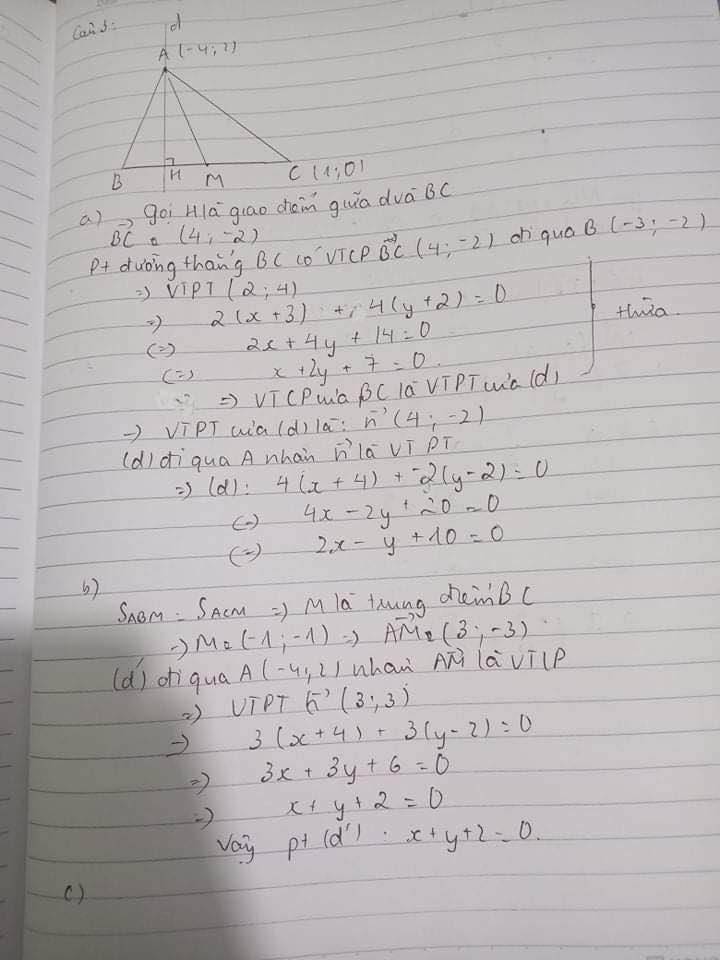 Câu 3:
d
A (-4; 2)
B H M C (1; 0)
a) Gọi H là giao điểm giữa d và BC
BC = (4; -2)
Pt đường thẳng BC có VTCP BC (4; -2) đi qua B (-3; -2)
=> VTPT (2; 4)
=> 2(x + 3) + 4(y + 2) = 0
(=) 2x + 4y + 14 = 0
(=) x + 2y + 7 = 0.
thừa
=> VTCP của BC là VTPT của (d)
-> VTPT của (d) là: n (4; -2)
(d) đi qua A nhận n là VTPT
=> (d): 4(x + 4) + -2(y - 2) = 0
(=) 4x - 2y + 20 = 0
(=) 2x - y + 10 = 0
b)
SABM = SACM => M là trung điểm BC
-> M = (-1; -1) => AM = (3; -3)
(d') đi qua A (-4; 2) nhận AM là VTCP
=> VTPT n (3; 3)
-> 3(x + 4) + 3(y - 2) = 0
=> 3x + 3y + 6 = 0
=> x + y + 2 = 0
Vậy pt (d') : x + y + 2 = 0.
c)